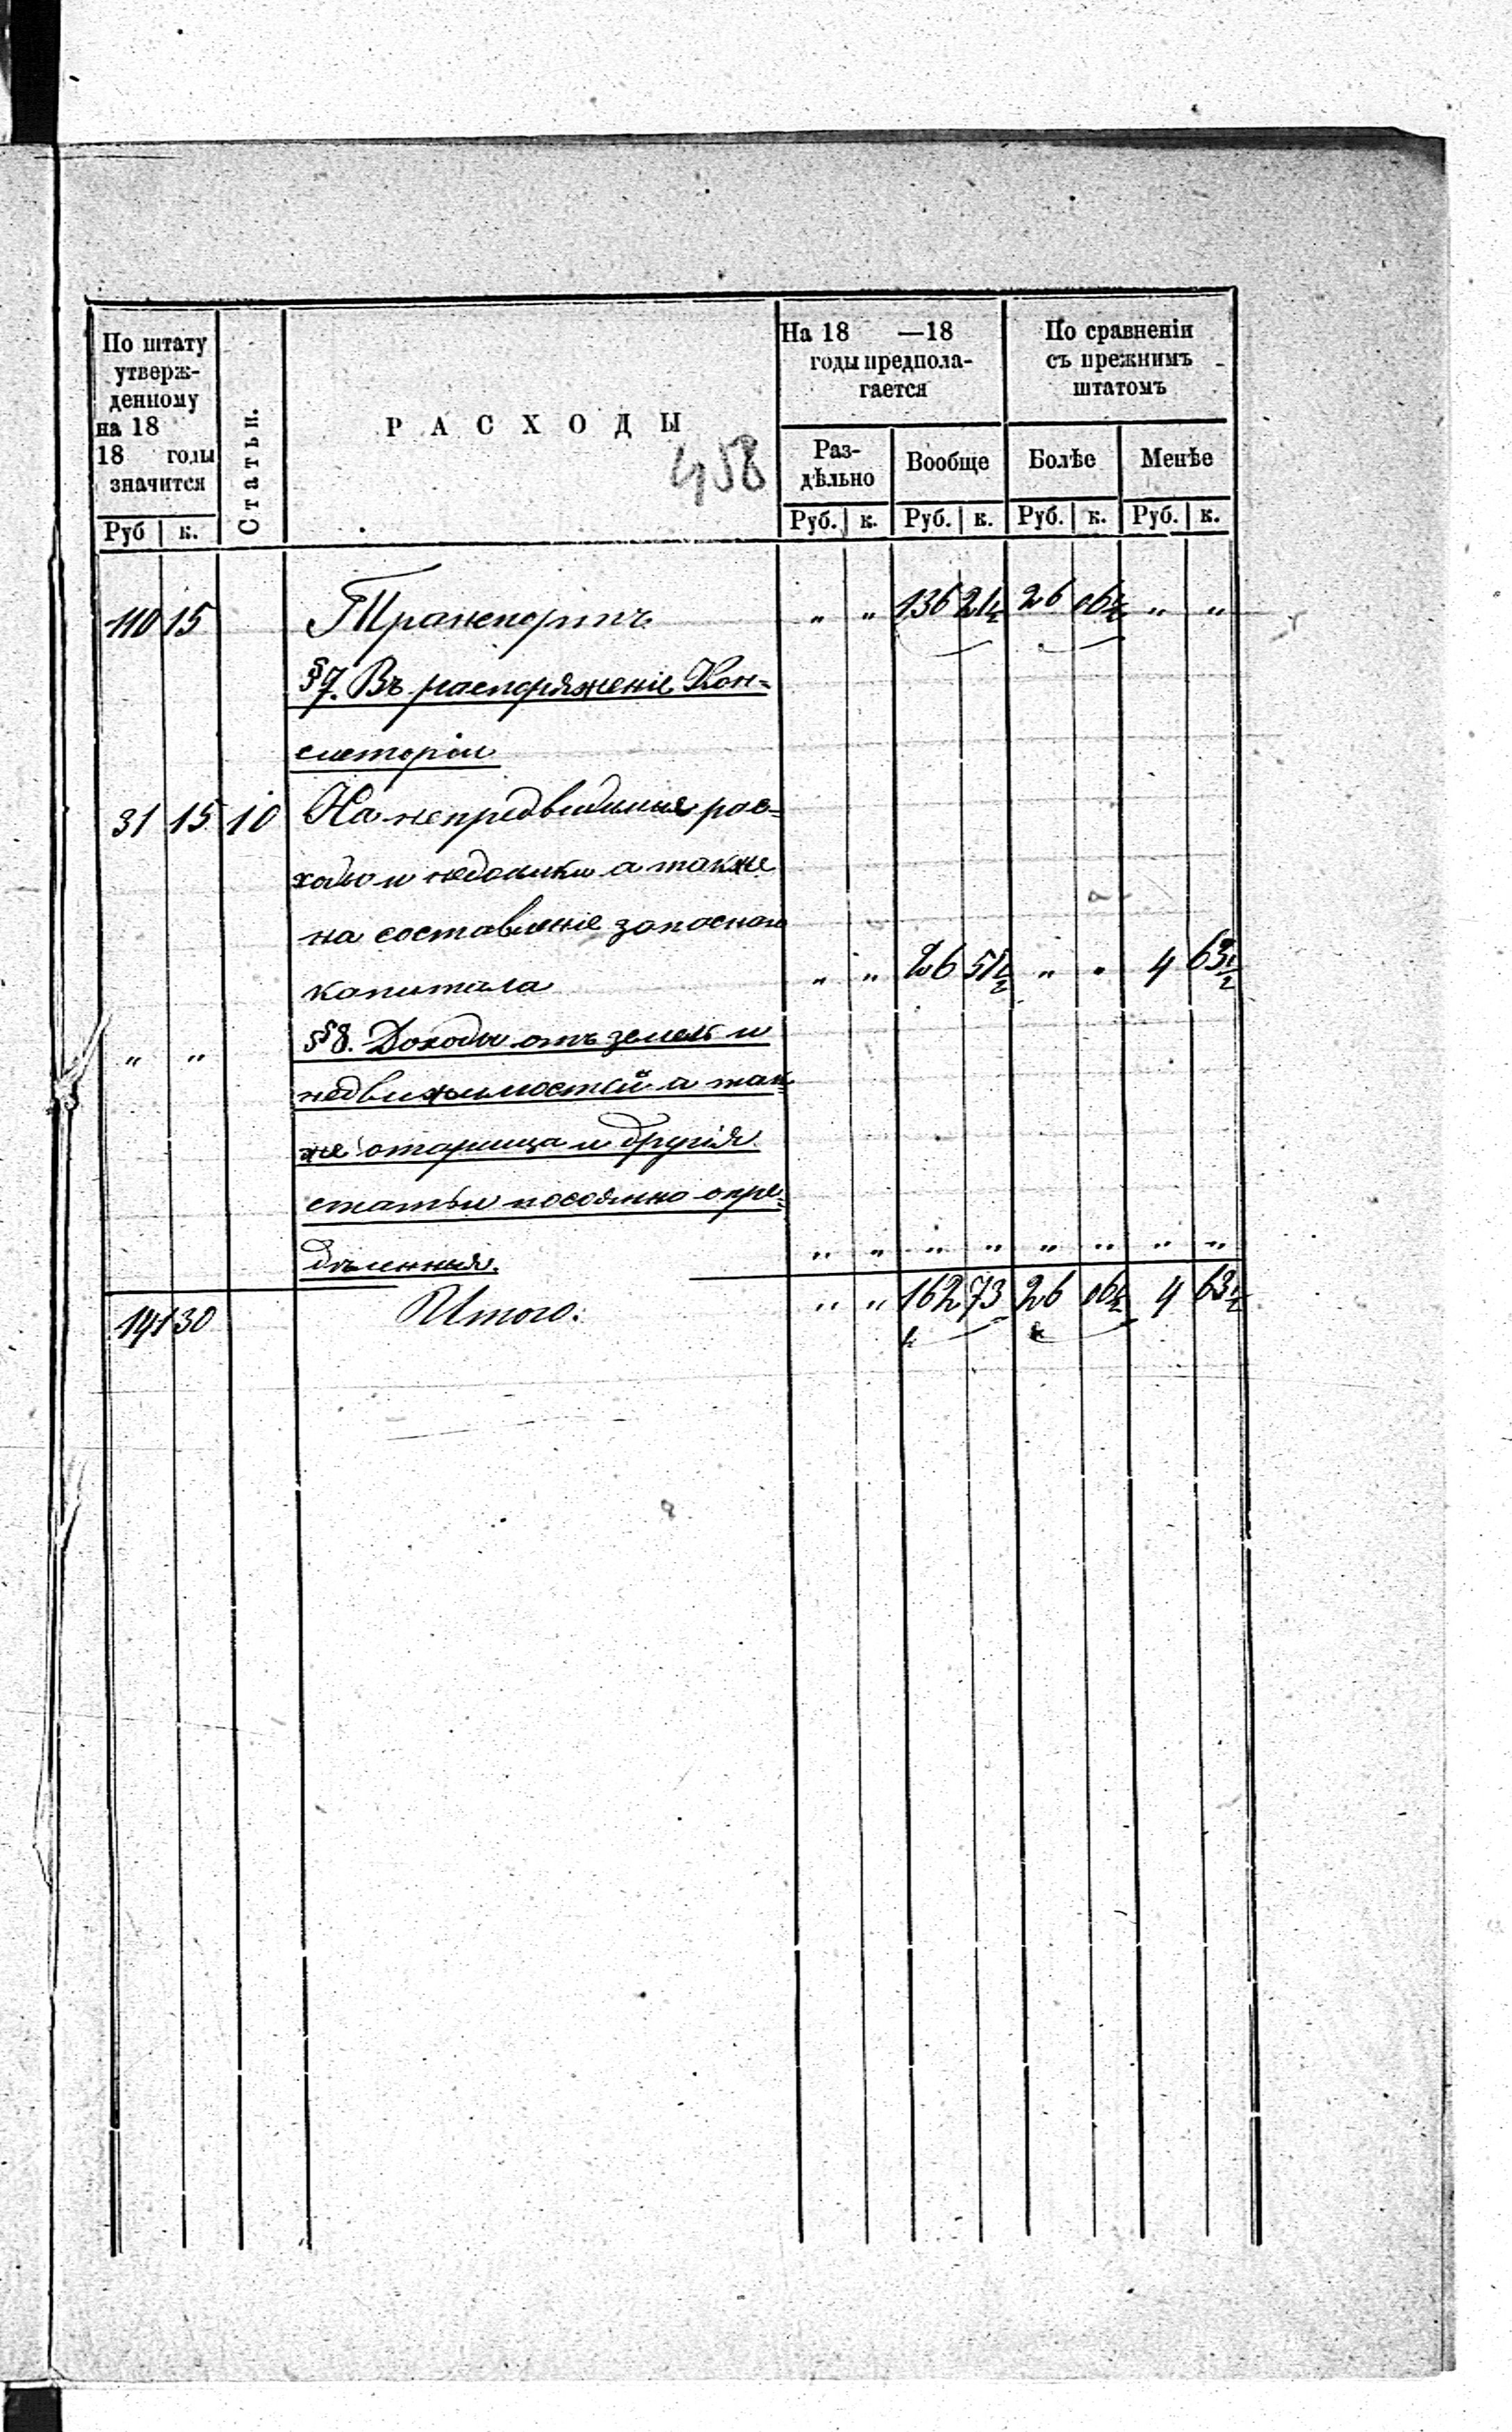 По штату
утверж-
денному
на 18
18 годы
значится
Руб к.
Статьи.
РАСХОДЫ
458
На 18 —18
годы предпола-
гается
Раз-
дѣльно
Вообще
Руб. к. Руб. к.
По сравненіи
съ прежнимъ
штатомъ
Болѣе Менѣе
Руб. к. Руб. к.
110 15 Транспортъ „ „ 136 21½ 26 06½ „ „
§7. Въ распоряженіе Кон-
систоріи
31 15 10 На непредвидимыя рас-
ходы и недоимки а также
на составленіе запаснаго
капитала „ „ 26 51½ „ „ 4 63½
„ „ §8. Доходы отъ земель и
недвижимостей а так-
же и другія
статьи опре-
дѣленныя. „ „ „ „ „ „ „ „
141 30 Итого: „ „ 162 73 26 06½ 4 63½